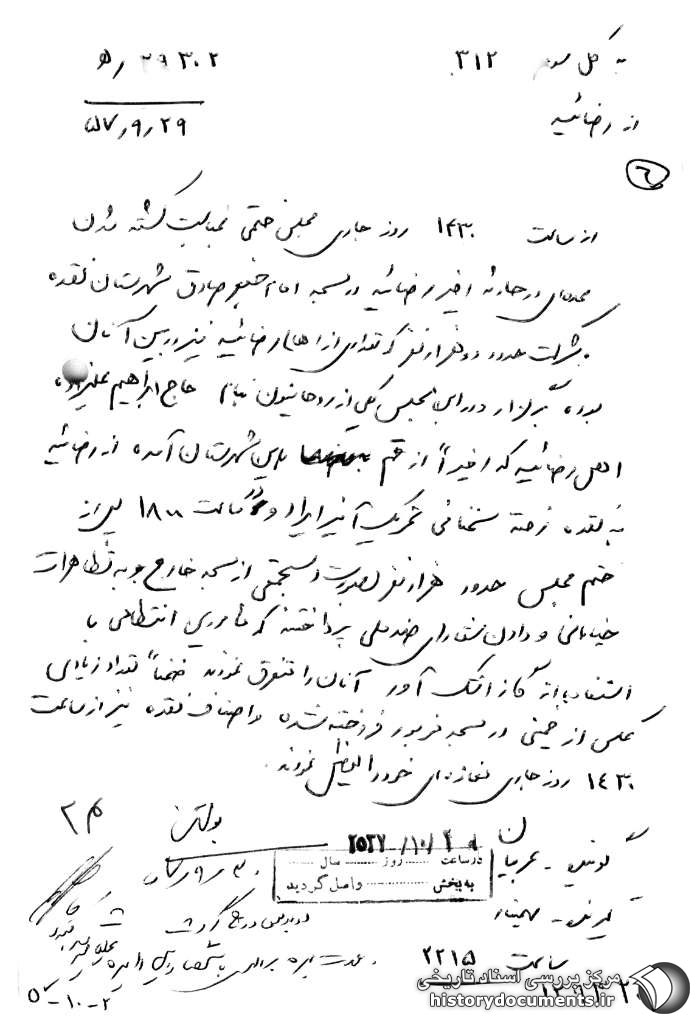 به کل سوم ۳۱۲
از رضائیه
۲۹۳۰۲ ر ه‍
۵۷/۹/۲۹
۶
از ساعت ۱۴۳۰ روز جاری مجلس ختمی بمناسبت کشته شدن
عده‌ای در حادثه اخیر رضائیه در مسجد امام جعفر صادق شهرستان نقده
بشرکت حدود دو هزار نفر که تعدادی از اهالی رضائیه نیز در بین آنان
بوده برگزار در این مجلس یکی از روحانیون بنام حاج ابراهیم علیزاده
اهل رضائیه که اخیراً از قم باین شهرستان آمده از رضائیه
به نقده رفته سخنانی تحریک آمیز ایراد و در ساعت ۱۸۰۰ پس از
ختم مجلس حدود هزار نفر بصورت دستجمعی از مسجد خارج و به تظاهرات
خیابانی و دادن شعارهای ضد ملی پرداختند که مامورین انتظامی با
استفاده از گاز اشک آور آنان را متفرق نمودند ضمناً تعداد زیادی
عکس از خمینی در مسجد مزبور فروخته شده و اصناف نقده نیز از ساعت
۱۴۳۰ روز جاری مغازه‌های خود را تعطیل نمودند.
بولتن
۲۵۳۷/۱۰/
در ساعت روز سال
به بخش واصل گردید
گوینده -
گیرنده -
ساعت ۲۲۱۵
در بولتن درج گردید
۲-۱۰-۵۷
مرکز بررسی اسناد تاریخی
historydocuments.ir